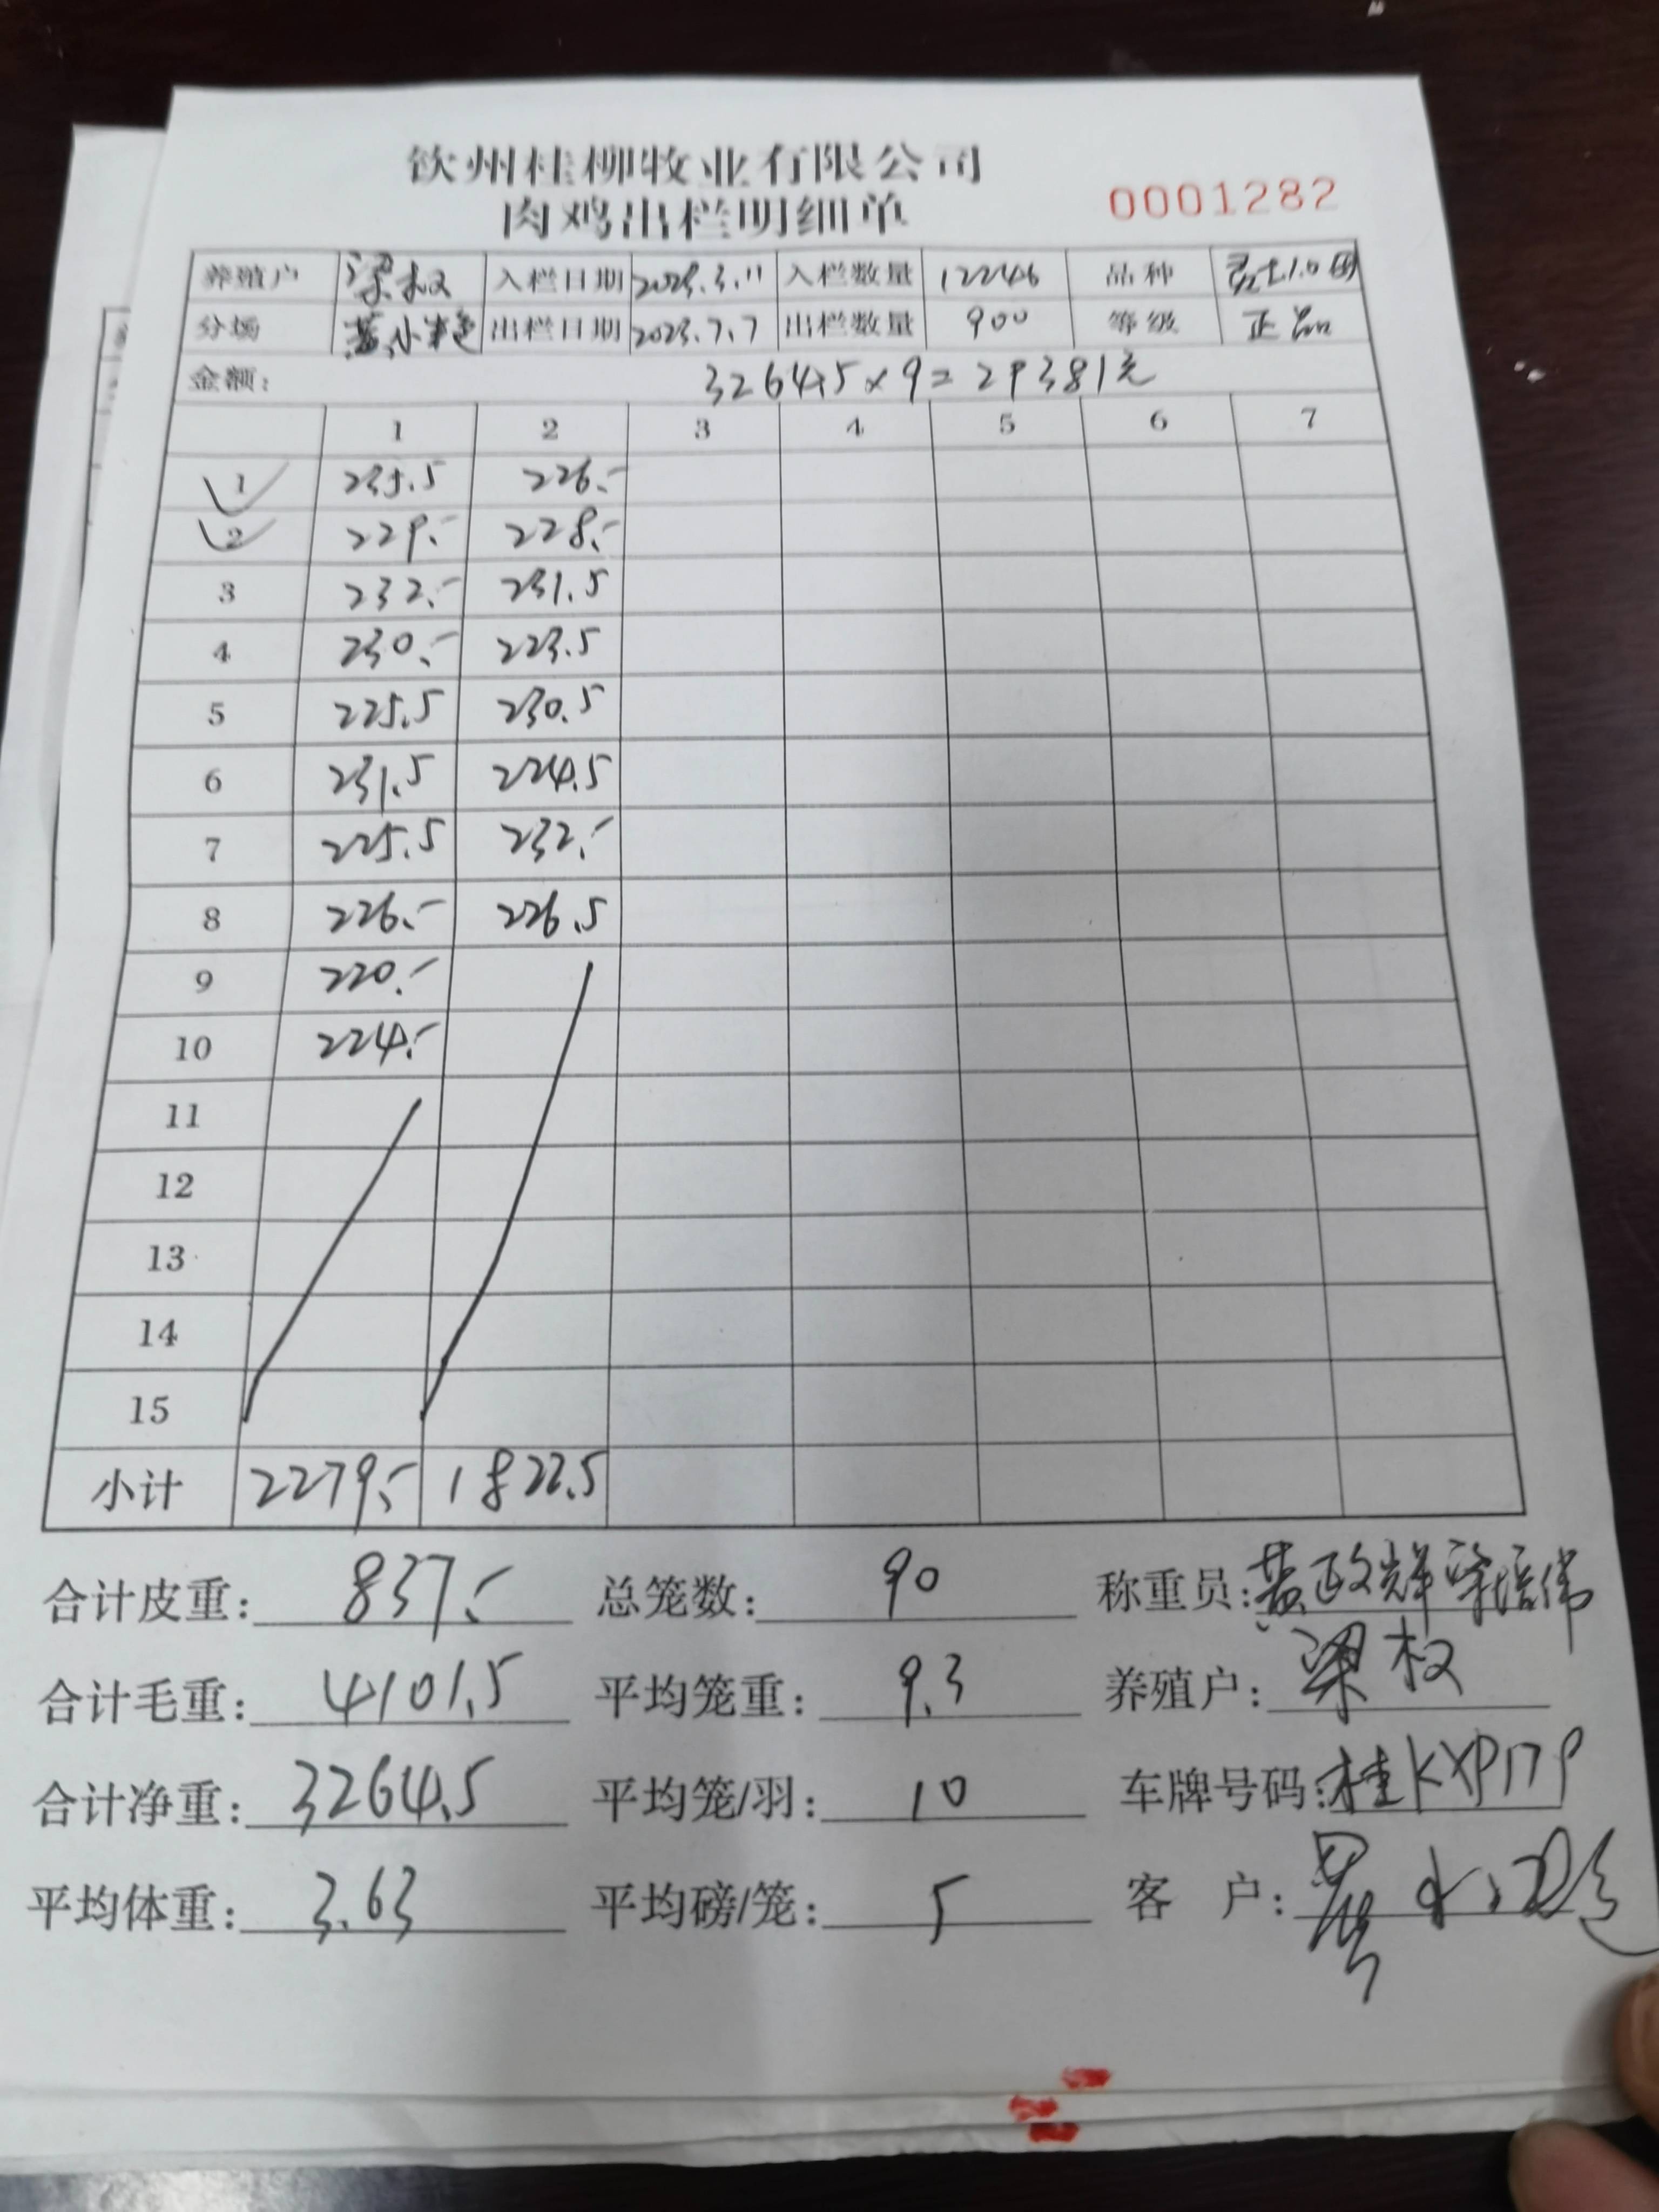 钦州桂柳牧业有限公司
肉鸡出栏明细单 0001282
养殖户 梁权 入栏日期 2023.3.11 入栏数量 12246 品种
分场 出栏日期 2023.7.7 出栏数量 900 等级 正品
金额： 3264.5×9=29381元
1 2 3 4 5 6 7
1 235.5 226.-
2 229.- 228.-
3 232.- 231.5
4 230.- 223.5
5 225.5 230.5
6 231.5 224.5
7 225.5 232.-
8 226.- 226.5
9 220.-
10 224.-
11
12
13
14
15
小计 2279.- 1822.5
合计皮重： 837.- 总笼数： 90 称重员： 黄政辉 梁培伟
合计毛重： 4101.5 平均笼重： 9.3 养殖户： 梁权
合计净重： 3264.5 平均笼/羽： 10 车牌号码： 桂KXP179
平均体重： 3.63 平均磅/笼： 5 客 户：